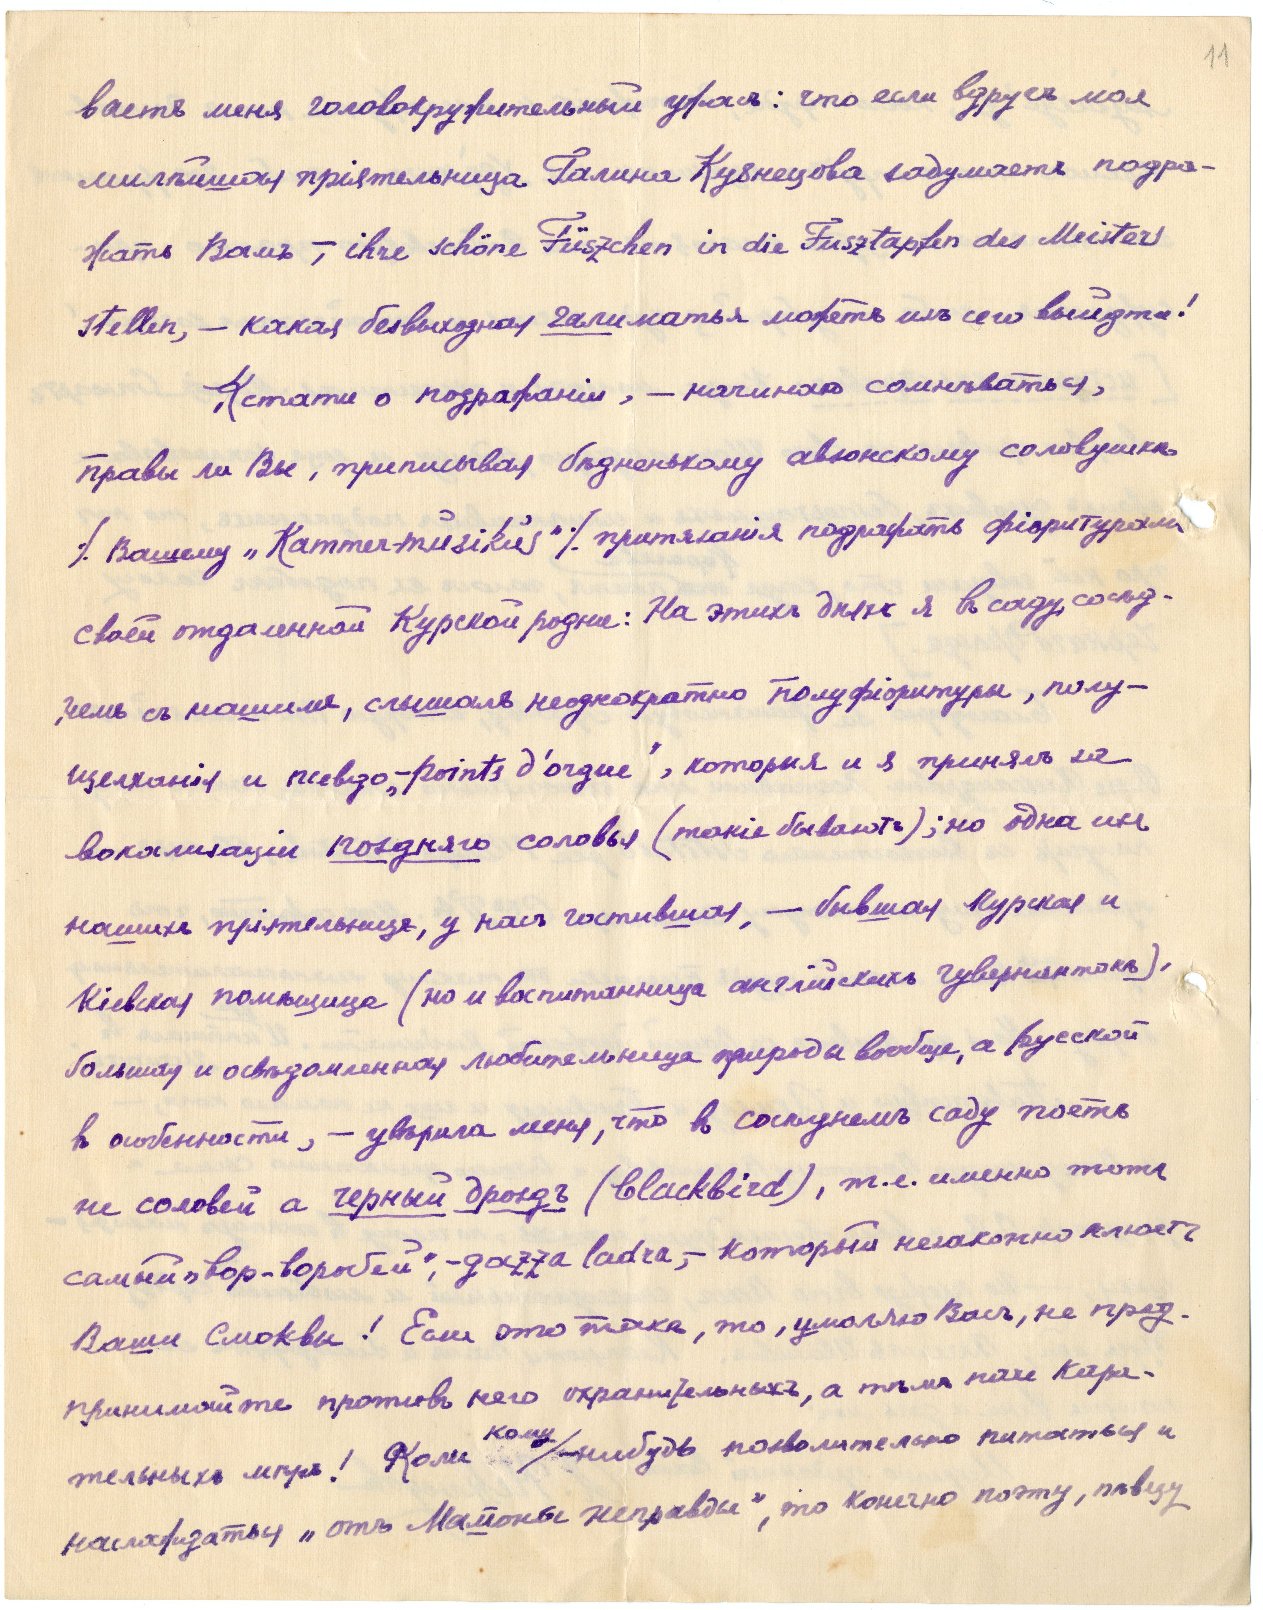 11
ваетъ меня головокружительный ужасъ: что если вдругъ моя
милѣйшая пріятельница Галина Кузнецова задумаетъ подра-
жать Вамъ, – ihre schöne Füszchen in die Fusztapfen des Meisters
stellen, – какая безвыходная галиматья можетъ изъ сего выйдти!
Кстати о подражаніи, – начинаю сомнѣваться,
правы ли Вы, приписывая бѣдненькому авіонскому соловушкѣ
·/. Вашему „Kammer-müsiküs" ·/. притязанія подражать фіоритурами
своей отдаленной Курской роднѣ: На этихъ дняхъ я въ саду, сосѣд-
немъ съ нашимъ, слышалъ неоднократно полуфіоритуры, полу-
щелканія и псевдо-„points d'orgue", которыя и я принялъ за
вокализаціи поздняго соловья (такіе бываютъ); но одна изъ
нашихъ пріятельницъ, у насъ гостившая, – бывшая Курская и
Кіевская помѣщица (но и воспитанница англійскихъ гувернантокъ),
большая и освѣдомленная любительница природы вообще, а русской
въ особенности, – увѣрила меня, что въ сосѣднемъ саду поетъ
не соловей а черный дроздъ (blackbird), т.е. именно тотъ
самый „вор-воробей", – gazza ladra, – который незаконно клюетъ
Ваши смоквы! Если это такъ, то, умоляю Васъ, не пред-
принимайте противъ него охранительныхъ, а тѣмъ паче кара-
тельныхъ мѣръ! Коли кому-нибудь позволительно питаться и
наслаждаться „отъ Мамоны неправды", то конечно поэту, пѣвцу